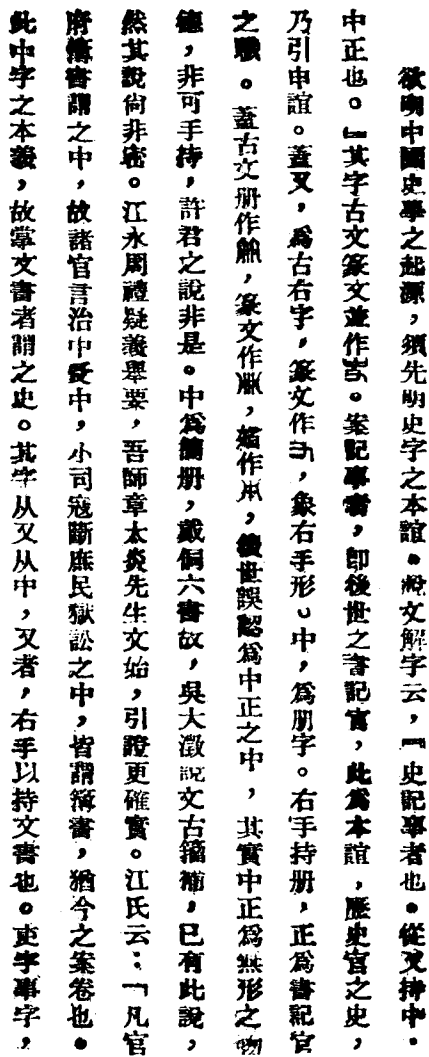 欲明中國史學之起源，須先明史字之本誼。說文解字云，「史記事者也。從又持中。
中正也。」其字古文篆文並作。案記事者，卽後世之書記官，此爲本誼，歷史官之史，
乃引申誼。蓋又，爲古右字，篆文作，象右手形。中，爲册字。右手持册，正爲書記官
之職。蓋古文册作，篆文作，省作，後世誤認爲中正之中，其實中正爲無形之物
德，非可手持，許君之說非是。中爲簡册，戴侗六書故，吳大澂說文古籀補，已有此說，
然其說尙非密。江永周禮疑義舉要，吾師章太炎先生文始，引證更確實。江氏云：「凡官
府簿書謂之中，故諸官言治中受中，小司寇斷庶民獄訟之中，皆謂簿書，猶今之案卷也。
此中字之本義，故掌文書者謂之史。其字从又从中，又者，右手以持文書也。吏字事字，